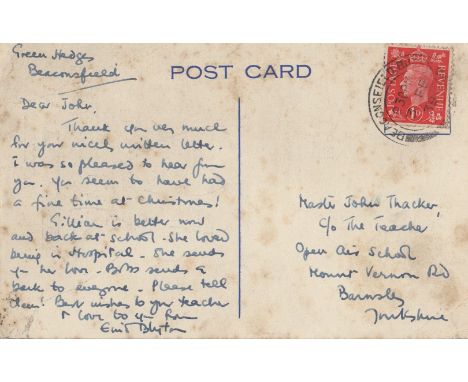 Green Hedges
Beaconsfield
POST CARD
Dear John,
Thank you very much
for your nicely written letter.
I was so pleased to hear from
you. You seem to have had
a fine time at Christmas!
Gillian is better now
and back at school. She loved
being in Hospital. She sends
you her love. Bobs sends a
bark to everyone. Please tell
them! Best wishes to your teacher
& love to you from
Enid Blyton
Master John Thacker,
c/o The Teacher
Open Air School
Mount Vernon Rd
Barnsley
Yorkshire
BEACONSFIELD
POSTAGE
REVENUE
1D